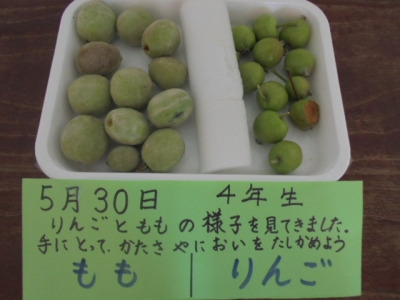 5月30日 4年生
りんごとももの様子を見てきました。
手にとって、かたさやにおいをたしかめよう
もも りんご